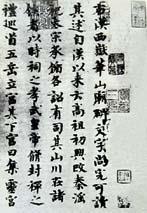 右漢西嶽華山廟碑文字尚完可讀
其述自漢以來云高祖初興改秦淫
祀太宗承循各詔有司其山川在諸
侯者以時祠之孝武皇帝脩封禪之
禮巡省五岳立宮其下宮曰集靈宮